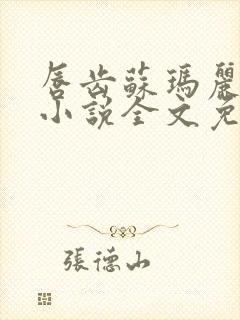 唇齿蘇瑪麗
小說全文免
張德山